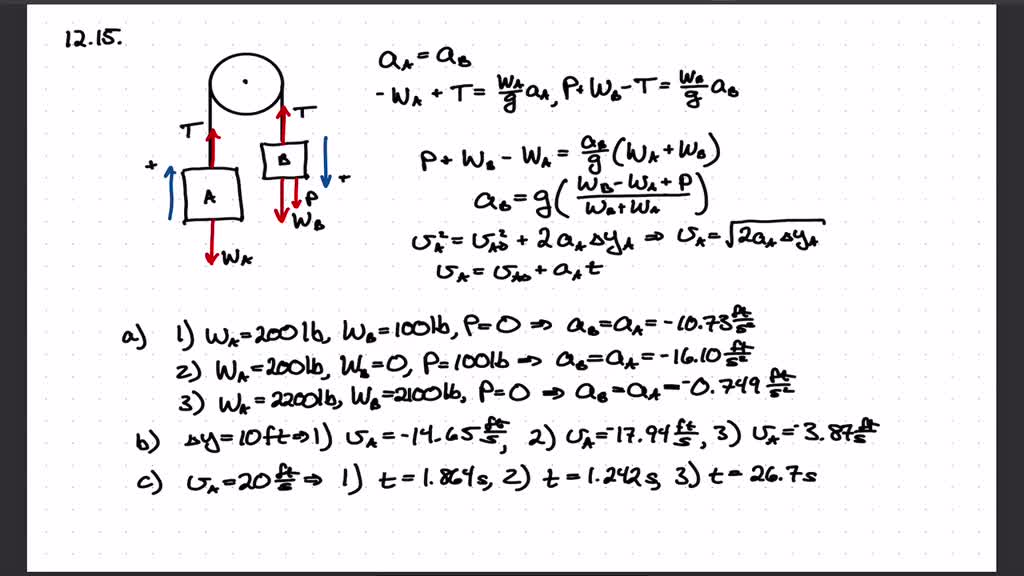 12.15.
T
T
+
A
B
+
P
W_B
W_A
a_A = a_B
-W_A + T = W_A/g a_A, P+W_B-T = W_B/g a_B
P + W_B - W_A = a_B/g (W_A + W_B)
a_B = g((W_B - W_A + P)/(W_B + W_A))
v_A² = v_A0² + 2a_A Δy_A ⇒ v_A = √(2a_A Δy_A)
v_A = v_A0 + a_A t
a) 1) W_A=200lb, W_B=100lb, P=0 ⇒ a_B=a_A=-10.73 ft/s²
2) W_A=200lb, W_B=0, P=100lb ⇒ a_B=a_A=-16.10 ft/s²
3) W_A=2200lb, W_B=2100lb, P=0 ⇒ a_B=a_A=-0.749 ft/s²
b) Δy=10ft⇒1) v_A=-14.65 ft/s, 2) v_A=-17.94 ft/s, 3) v_A=-3.87 ft/s
c) v_A=20 ft/s ⇒ 1) t=1.864s, 2) t=1.242s, 3) t=26.7s